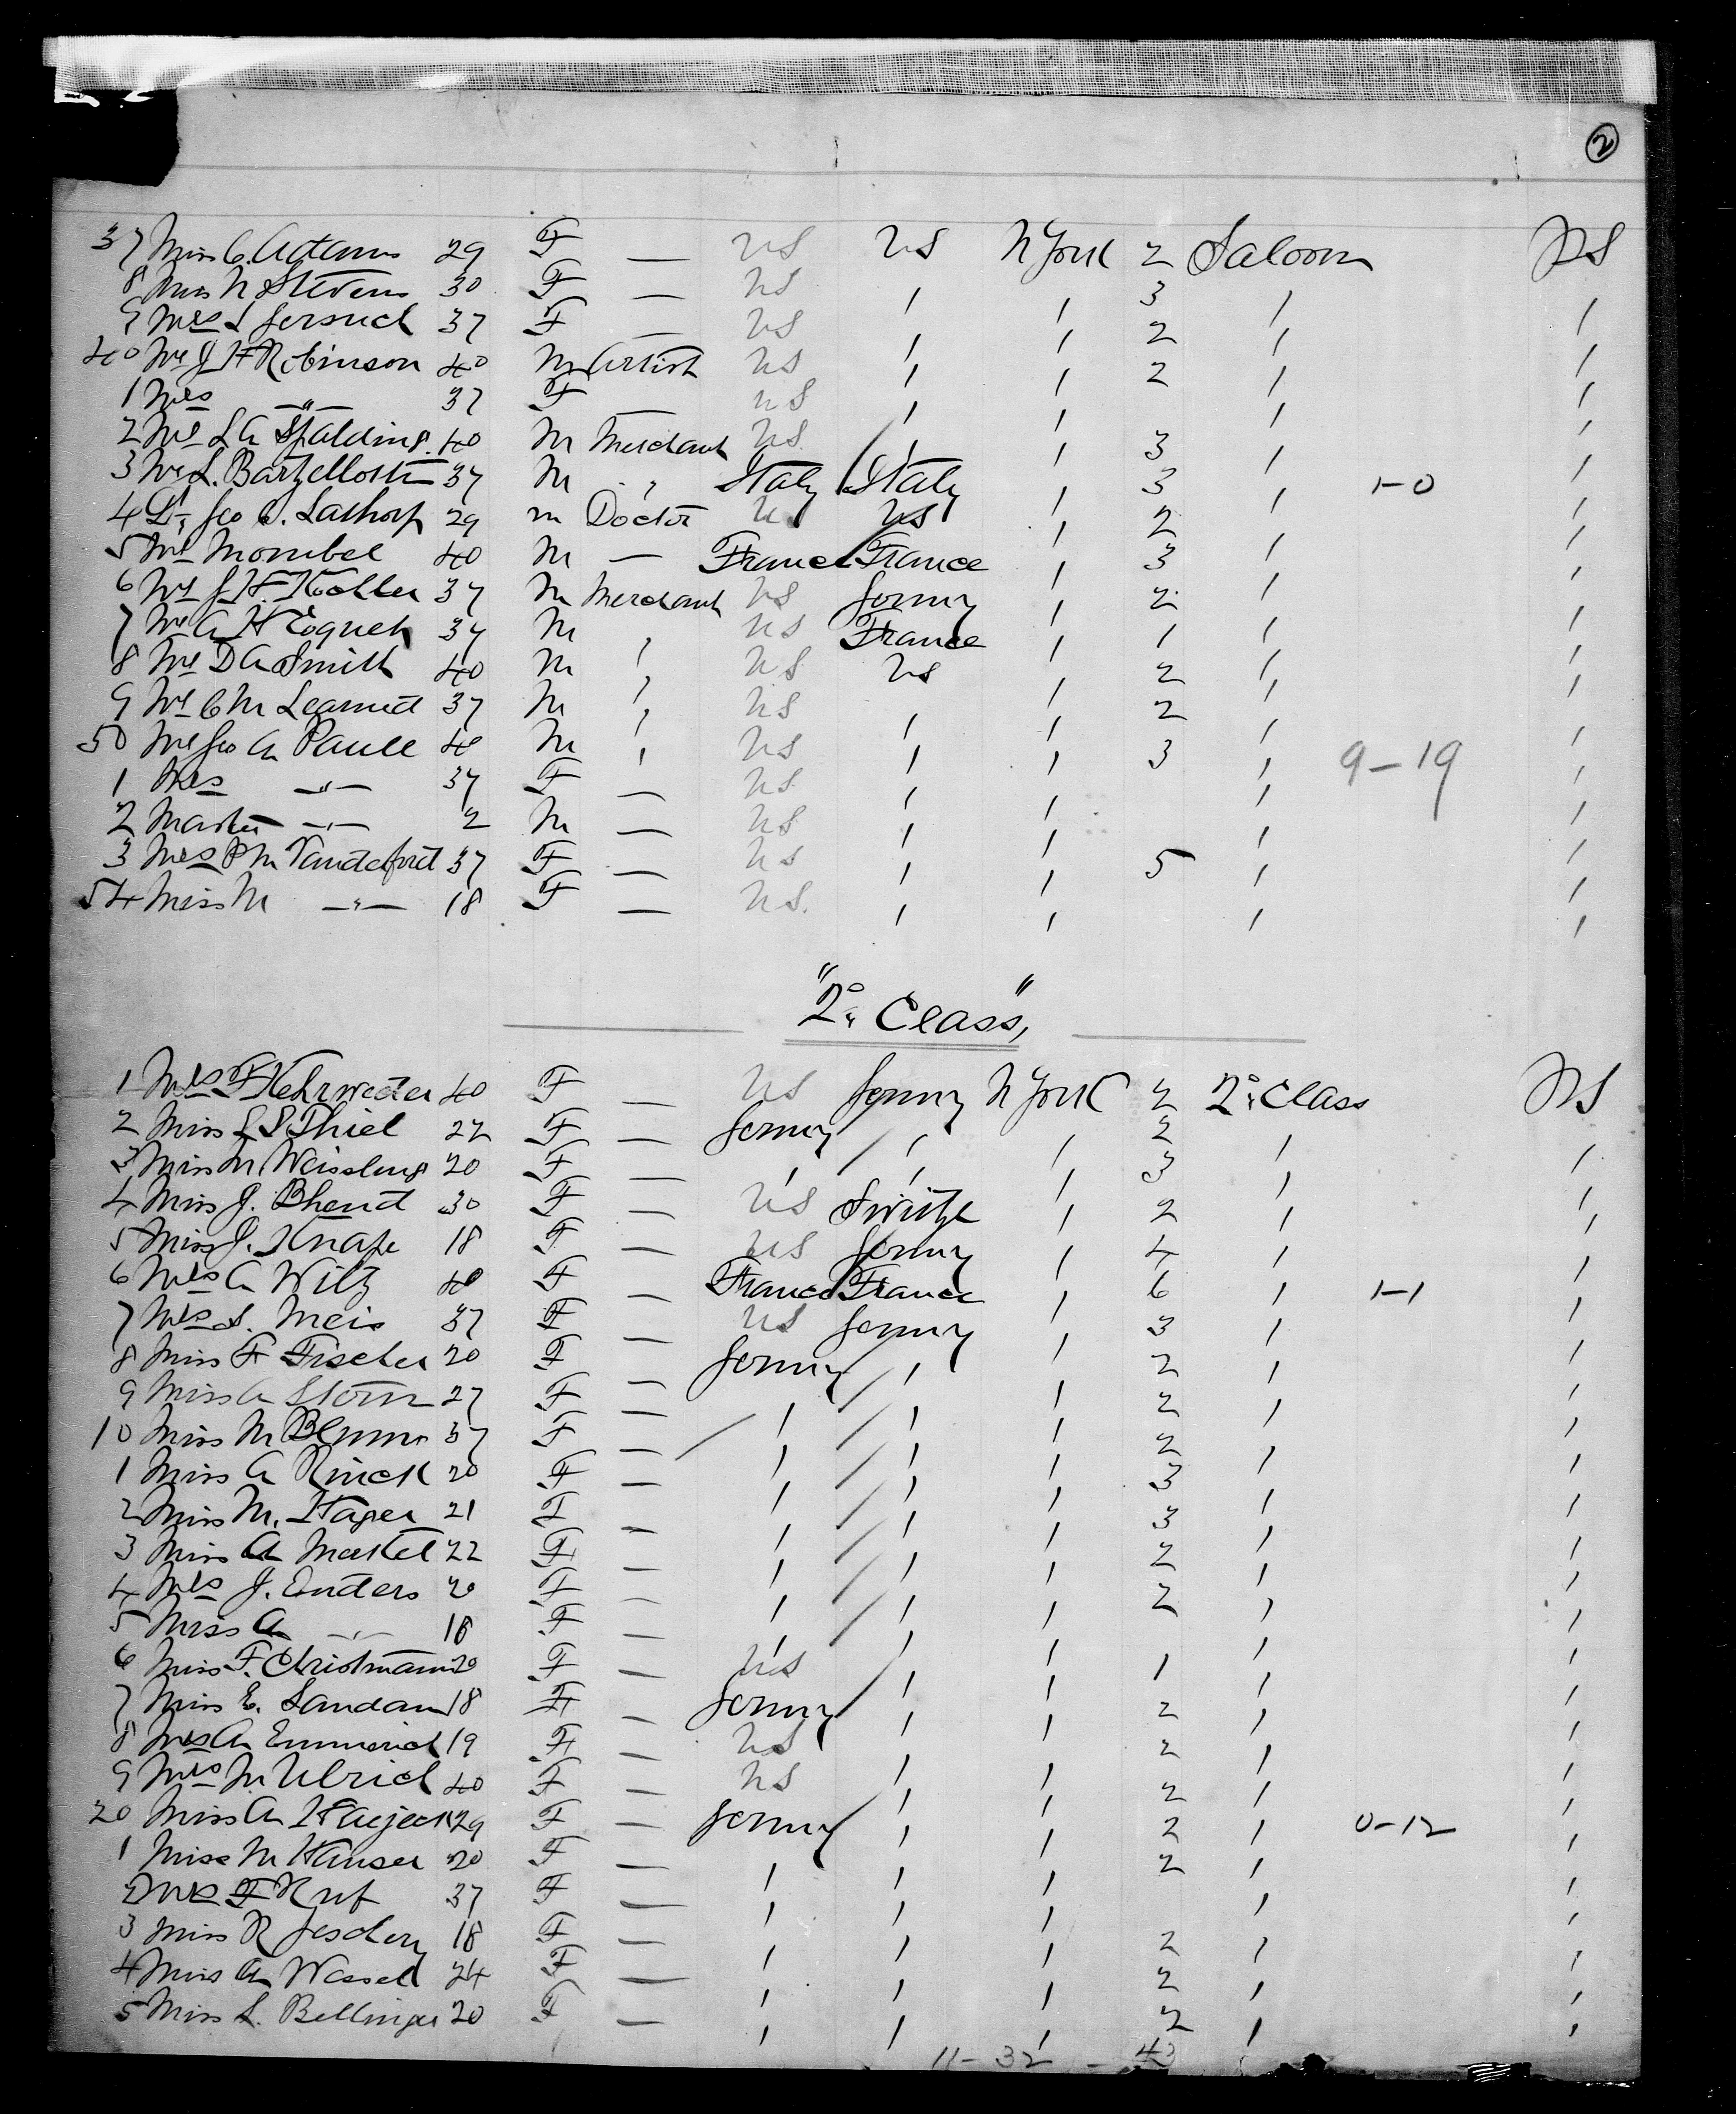 2
37 Miss C. Adams 29 F — US US N York 2 Saloon US
8 Mrs N Stevens 30 F — US / / 3 / /
9 Mrs L 37 F — US / / 2 / /
40 Mr J H Robinson 40 M Artist US / / 2 / /
1 Mrs —"— 37 F — US / / / /
2 Mr L A Spalding 40 M Merchant US / / 3 / /
3 Mr L. 37 M " Italy Italy / 3 / 1-0 /
4 Dr Geo W. Lathrop 29 M Doctor US US / 2 / /
5 Mr Mombel 40 M — France France / 3 / /
6 Mr J. H. Kohler 37 M Merchant US Germy / 2 / /
7 Mr A H 37 M " US France / 1 / /
8 Mr D A Smith 40 M " US US / 2 / /
9 Mr C M Learned 37 M " US / / 2 / /
50 Mr Geo A Paull 40 M " US / / 3 / 9-19 /
1 Mrs —"— 37 F — US / / / /
2 Master —"— 2 M — US / / / /
3 Mrs P M Vandefort 37 F — US / / 5 / /
54 Miss M —"— 18 F — US / / / /
"2o Class"
1 Mrs F Kehrweder 40 F — US Germy N York 2 2o Class US
2 Miss L S Thiel 22 F — Germy / / 2 / /
3 Miss M 20 F — / / / 3 / /
4 Miss J. Bhend 30 F — US Switze / 2 / /
5 Miss J. Knape 18 F — US Germy / 4 / /
6 Mrs A Wiltz 40 F — France France / 6 / 1-1 /
7 Mrs S. Meis 37 F — US Germy / 3 / /
8 Miss F Fischer 20 F — Germy / / 2 / /
9 Miss A Storm 27 F — / / / 2 / /
10 Miss M 37 F — / / / 2 / /
1 Miss A Rinck 20 F — / / / 3 / /
2 Miss M. Hager 21 F — / / / 3 / /
3 Miss A Markel 22 F — / / / 2 / /
4 Mrs J. Enders 20 F — / / / 2 / /
5 Miss A —"— 18 F — / / / /
6 Miss F. Christmann 20 F — US / / 1 / /
7 Miss E. Landam 18 F — Germy / / 2 / /
8 Mrs A Emmerich 19 F — US / / 2 / /
9 Mrs M Ulrich 40 F — US / / 2 / /
20 Miss A 29 F — Germy / / 2 / 0-12 /
1 Miss M Hauser 20 F — / / / 2 / /
2 Mrs F Ruf 37 F — / / / / /
3 Miss R 18 F — / / / 2 / /
4 Miss A Wassel 24 F — / / / 2 / /
5 Miss L. Bellinger 20 F — / / / 2 / /
11-32 - 43